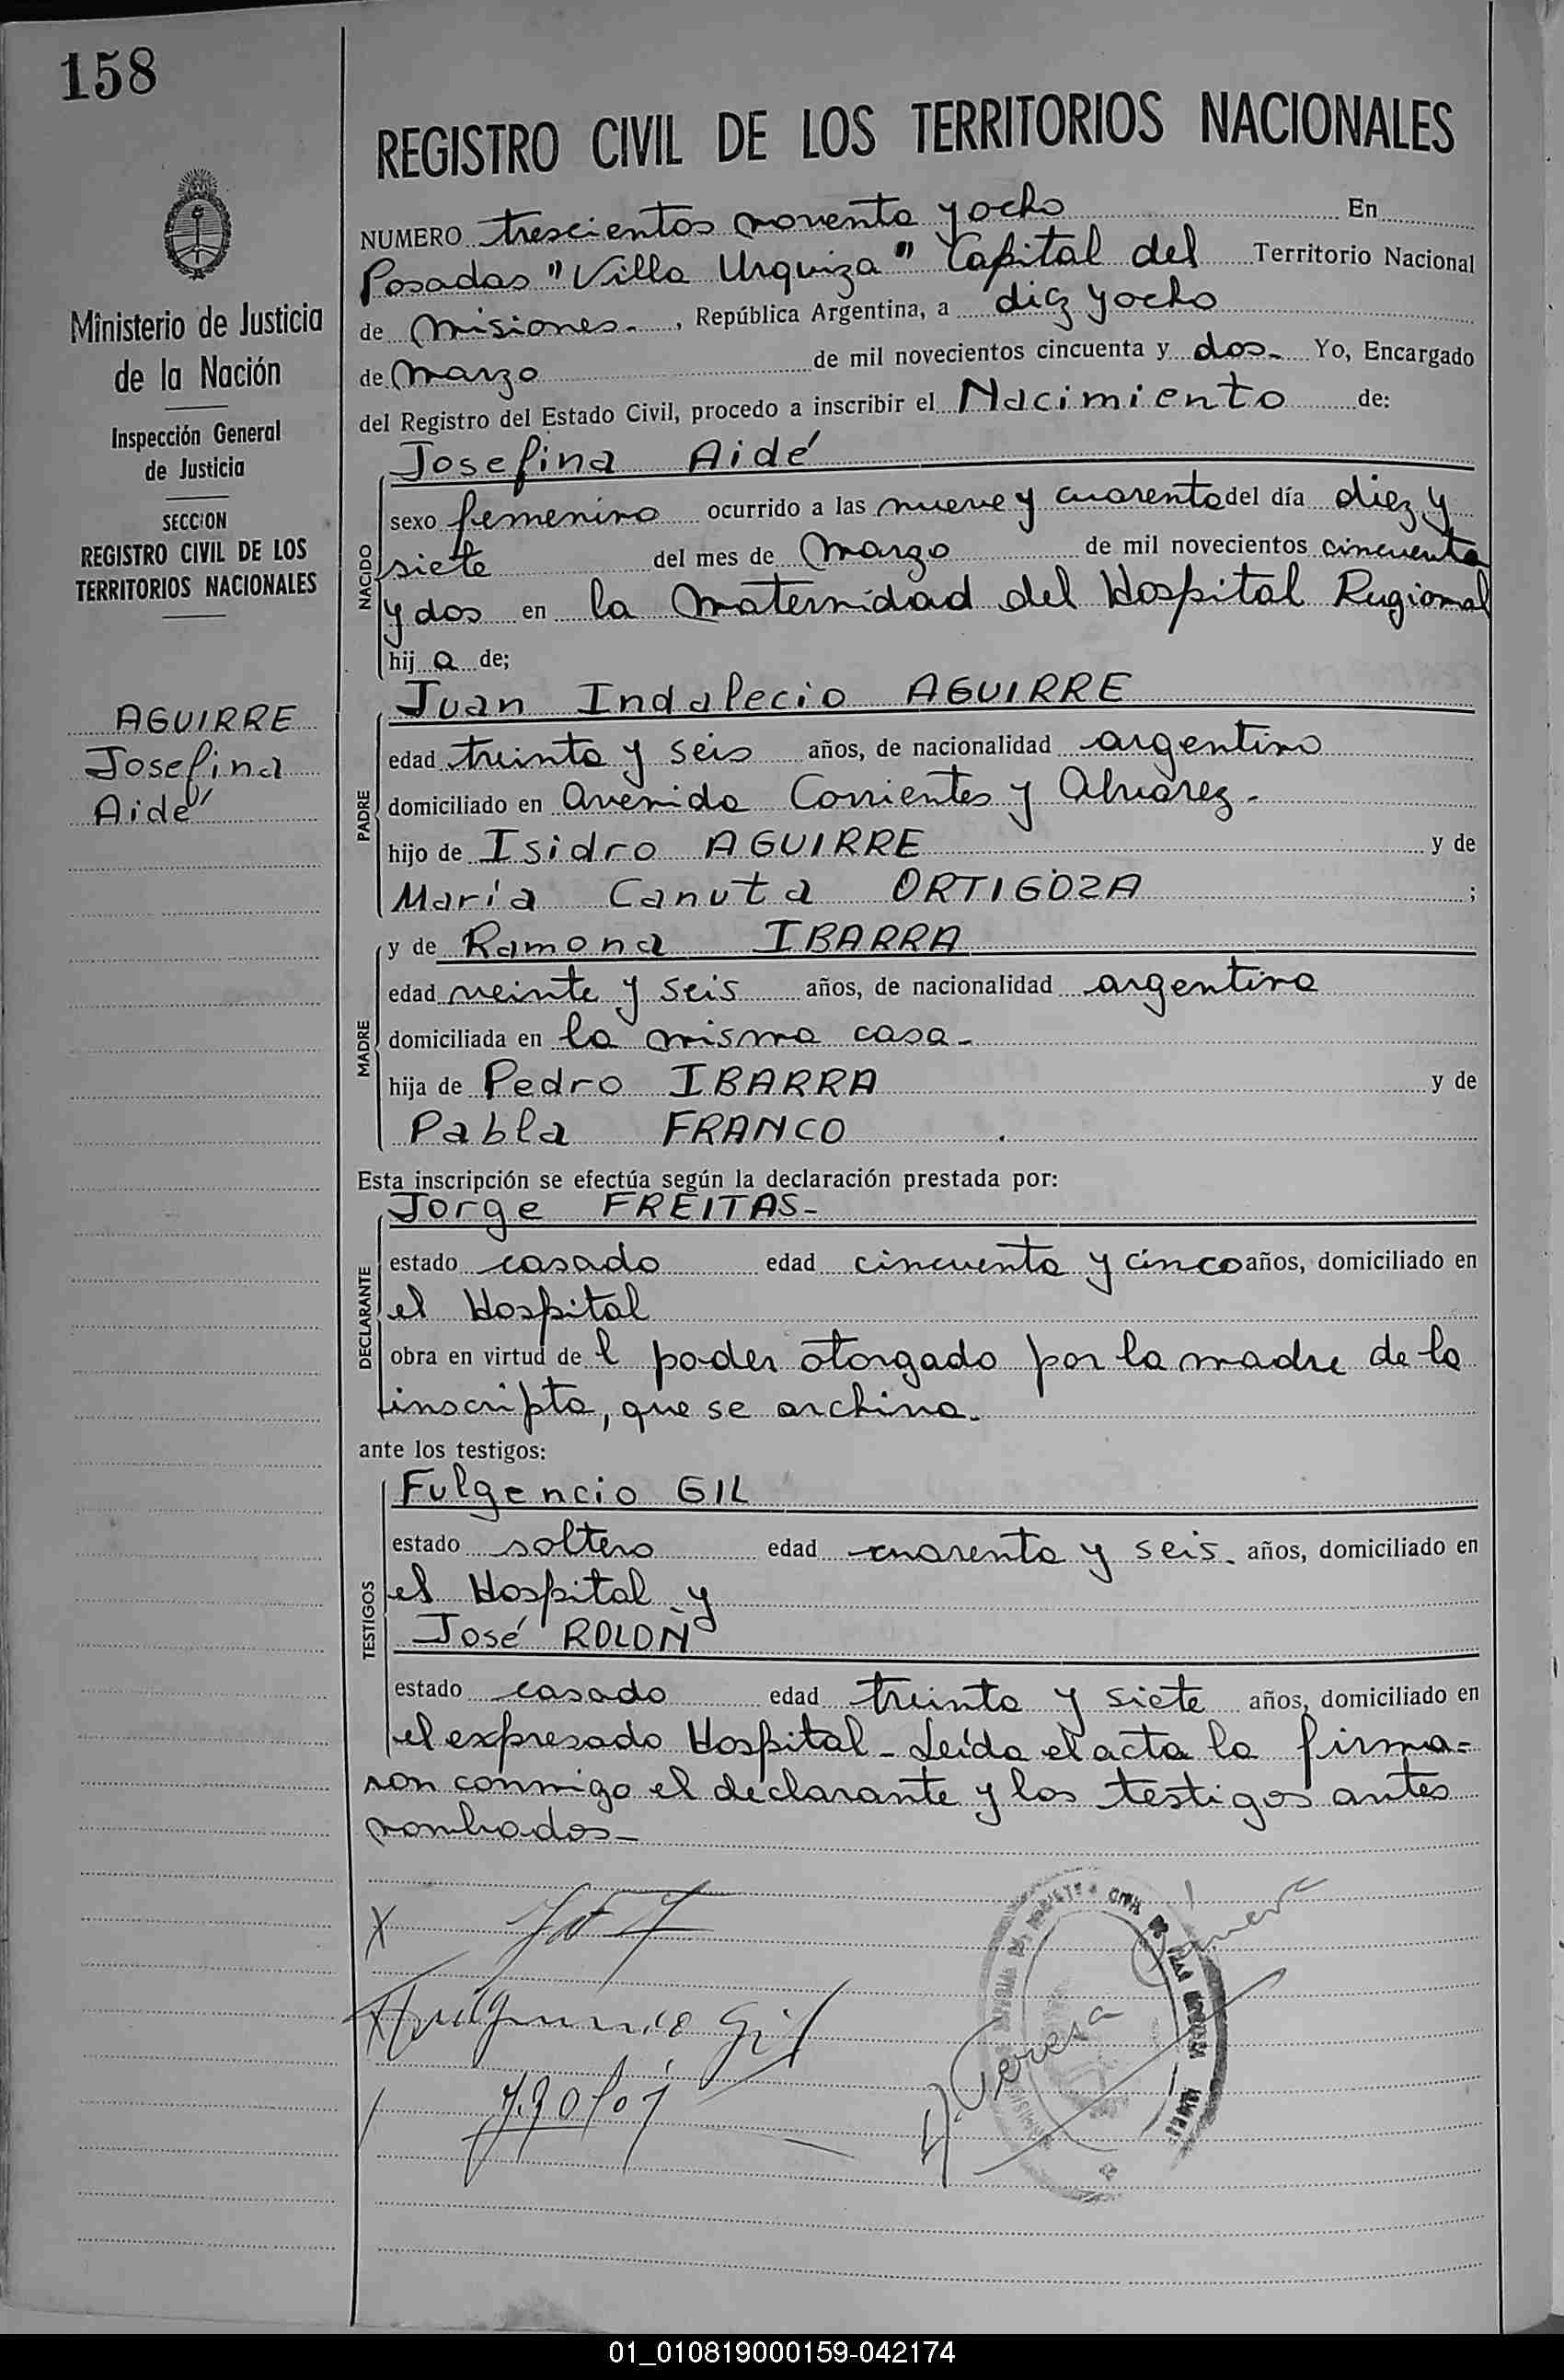 158
REGISTRO CIVIL DE LOS TERRITORIOS NACIONALES
Ministerio de Justicia
de la Nación
Inspección General
de Justicia
SECCION
REGISTRO CIVIL DE LOS
TERRITORIOS NACIONALES
AGUIRRE
Josefina
Aidé
NUMERO trescientos noventa y ocho En
Posadas "Villa Urquiza" Capital del Territorio Nacional
de Misiones-, República Argentina, a diez y ocho
de Marzo de mil novecientos cincuenta y dos- Yo, Encargado
del Registro del Estado Civil, procedo a inscribir el Nacimiento de:
NACIDO
Josefina Aidé
sexo femenino ocurrido a las nueve y cuarenta del día diez y
siete del mes de Marzo de mil novecientos cincuenta
y dos en la Maternidad del Hospital Regional
hija de;
PADRE
Juan Indalecio AGUIRRE
edad treinta y seis años, de nacionalidad argentino
domiciliado en Avenida Corrientes y Alvarez-
hijo de Isidro AGUIRRE y de
María Canuta ORTIGOZA ;
MADRE
y de Ramona IBARRA
edad veinte y seis años, de nacionalidad argentina
domiciliada en la misma casa-
hija de Pedro IBARRA y de
Pabla FRANCO .
Esta inscripción se efectúa según la declaración prestada por:
DECLARANTE
Jorge FREITAS-
estado casado edad cincuenta y cinco años, domiciliado en
el Hospital
obra en virtud del poder otorgado por la madre de la
inscripta, que se archiva.
ante los testigos:
TESTIGOS
Fulgencio GIL
estado soltero edad cuarenta y seis- años, domiciliado en
el Hospital y
José ROLON
estado casado edad treinta y siete años, domiciliado en
el expresado Hospital- Leída el acta la firma=
ron conmigo el declarante y los testigos antes
nombrados-
Fulgencio Gil
J. Rolón
Teresa
01_010819000159-042174